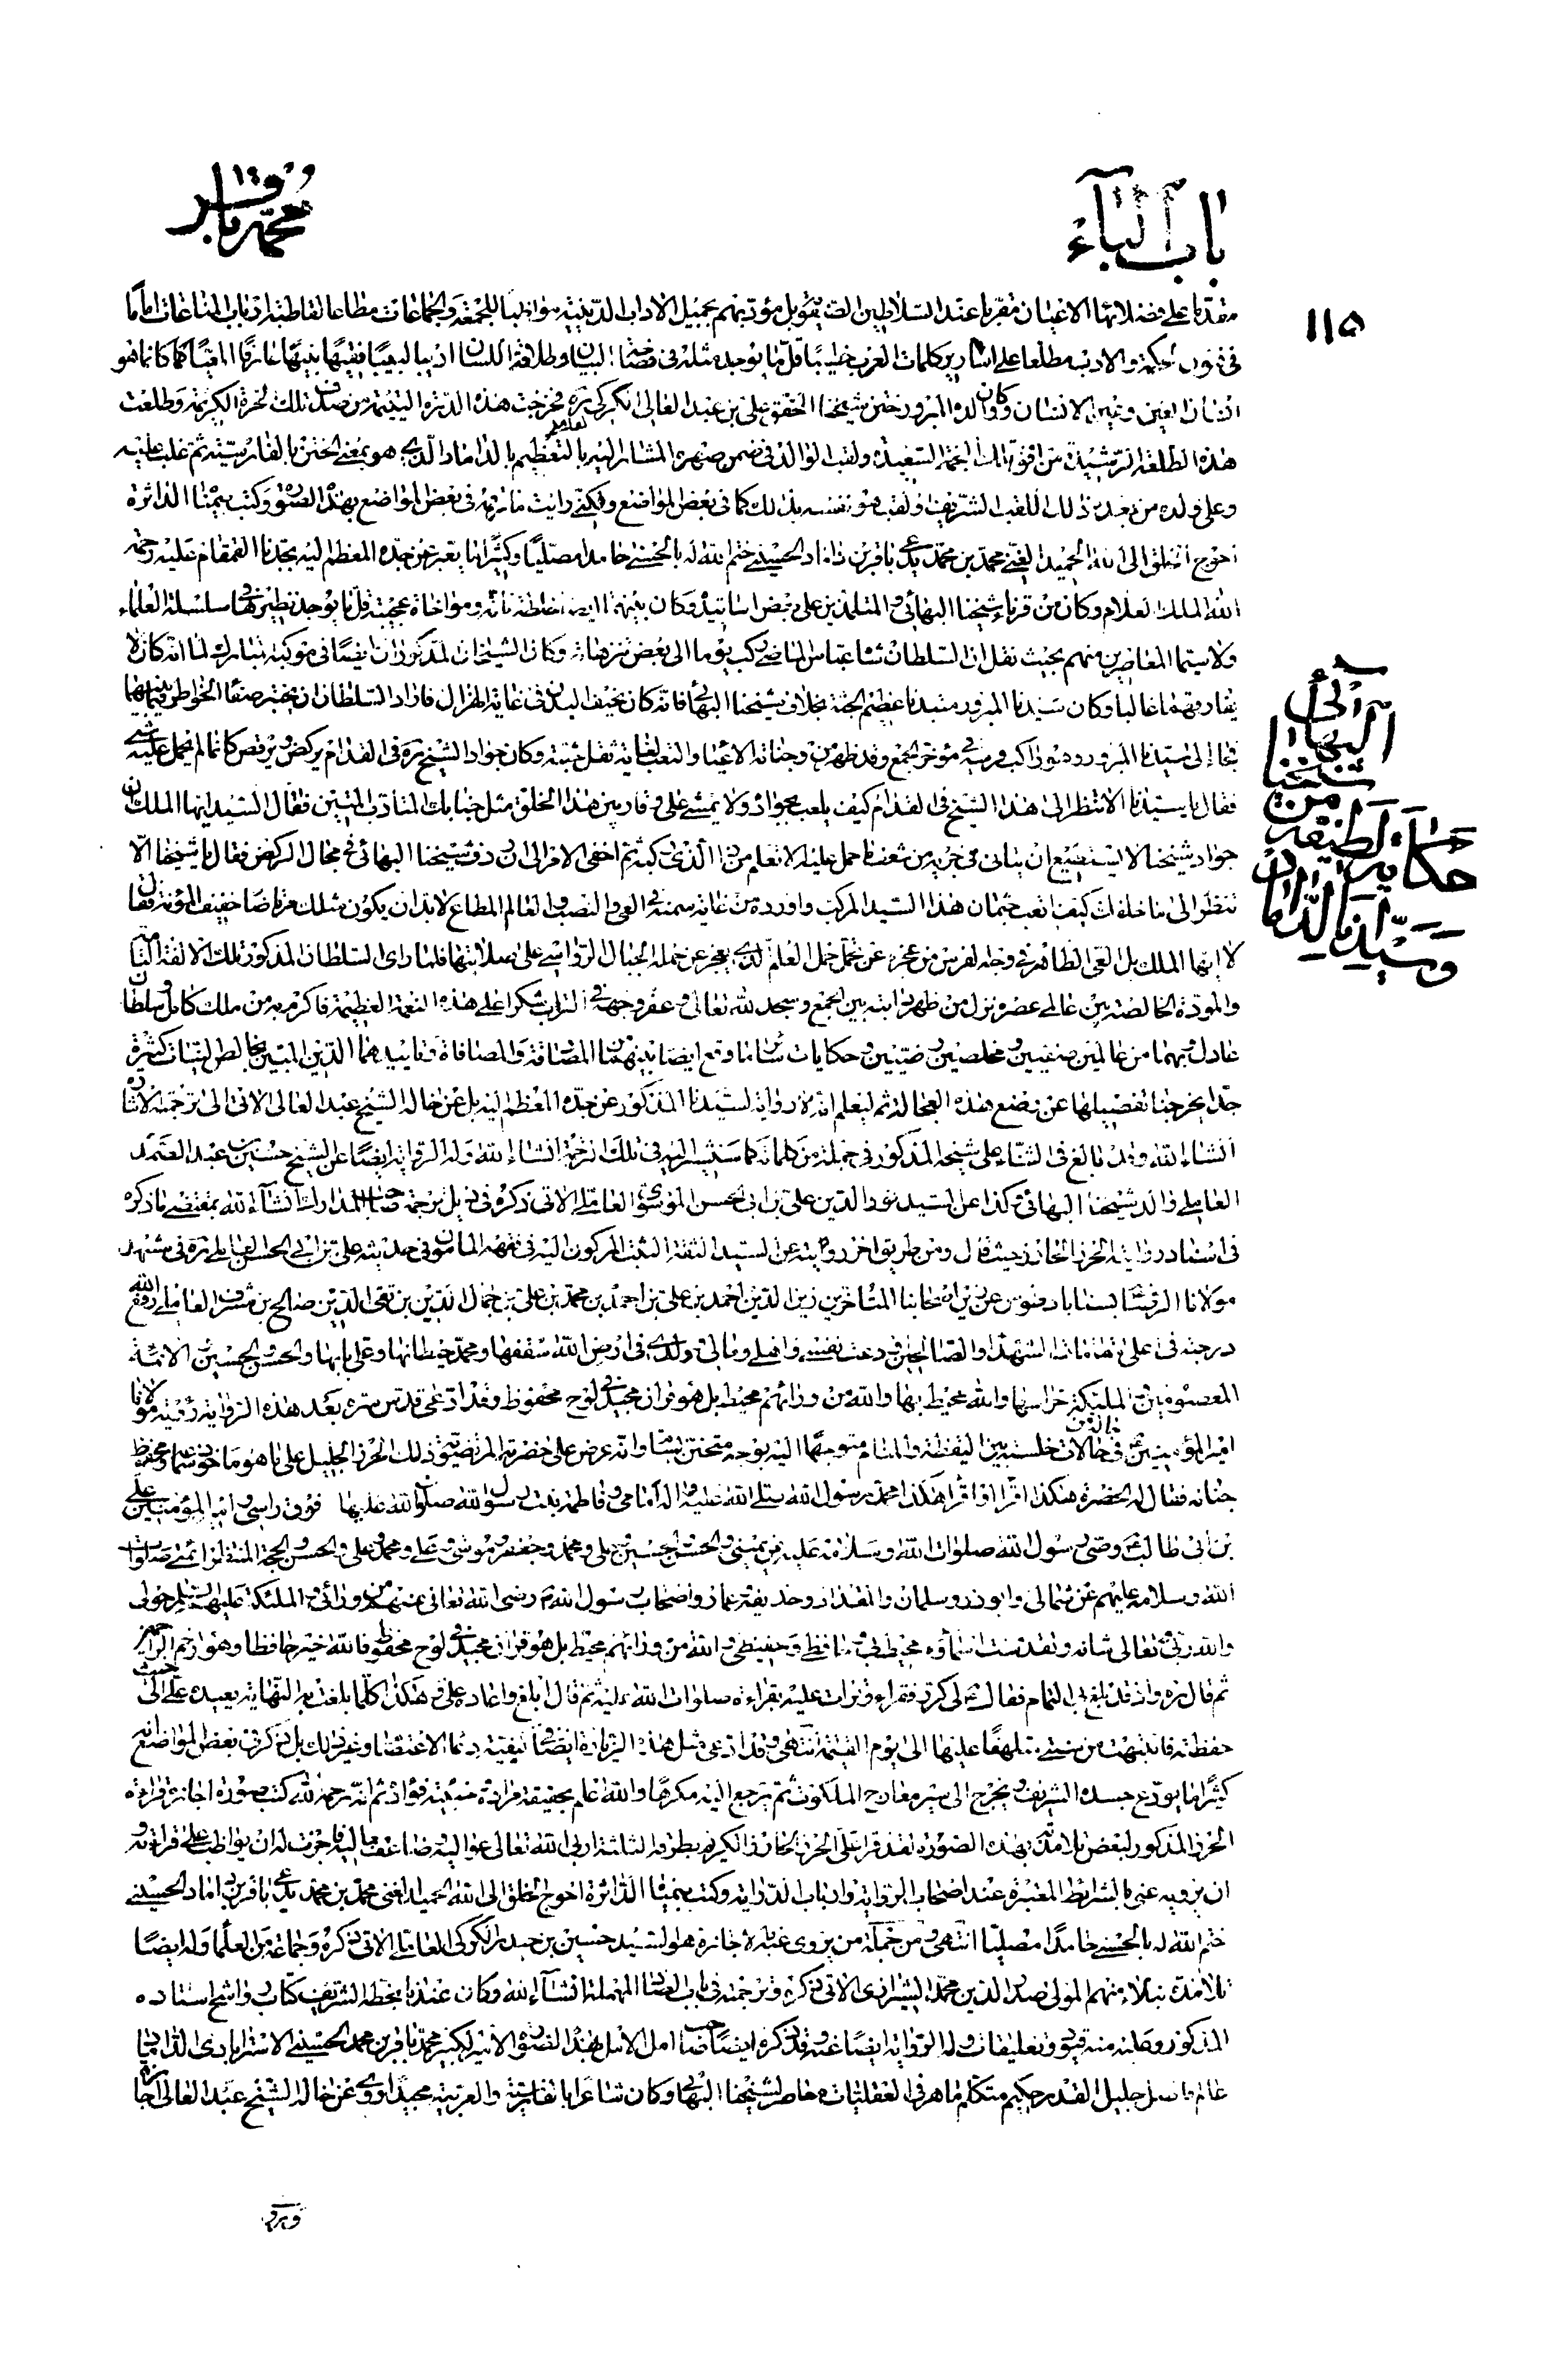 باب الباء
محمد باقر
١١۵
مقدما على فضلائها الاعيان مقربا عند السلاطين الصفوية بل مؤدبهم بجميل الاداب الدينية مواظبا للجمعة والجماعات مطاعا لقاطبة ارباب المناعات اماما
فى فنون الحكمة والادب مطلعا على اسارير كلمات العرب خطيبا قل ما يوجد مثله فى فصاحة البيان وطلاقة اللسان اديبا لبيبا فقيها نبيها عارفا المعيا كانما هو
انسان العين وعين الانسان وكان والده المبرور ختن شيخنا المحقق على بن عبد العالى الكركى ره فخرجت هذه الدرة اليتيمة من صدف تلك الحرة الكريمة وطلعت
هذه الطلعة الرشيدة من افق تلك النجمة السعيدة ولقب الوالد فى ضمن صهره المشار اليه بالتعظيم بالداماد الذى هو بمعنى الختن بالفارسية ثم غلب عليه
وعلى ولده من بعد ذلك اللقب الشريف ولقب هو نفسه بذلك كما فى بعض المواضع ولكنى رايت ما رقمه فى بعض المواضع بهذه الصورة وكتب بيمناه الداثرة
احوج الخلق الى الله الحميد الغنى محمد بن محمد يدعى باقر بن داماد الحسينى ختم الله له بالحسنى حامدا مصليا وكثيرا ما يعبر عن جده المعظم اليه بجدنا القمقام عليه رحمة
الله الملك العلام وكان من قرناء شيخنا البهائى والمتلمذين على بعض اساتيذه وكان بينهما ايضا خلطة تامة ومواخاة عجيبة قل ما يوجد نظيرها فى سلسلة العلماء
ولا سيما المعاصرين منهم بحيث نقل ان السلطان شاه عباس الماضى ركب يوما الى بعض تنزهاته وكان الشيخان المذكوران ايضا فى موكبه المبارك لما انه كان لا
يفارقهما غالبا وكان سيدنا المبرور متبدنا عظيم الجثة بخلاف شيخنا البهائى فانه كان نحيف البدن فى غاية الهزال فاراد السلطان ان يختبر صفاء الخواطر فيما بينهما
فجاء الى سيدنا المبرور وهو راكب فرسه فى مؤخر الجمع وقد ظهر من وجناته الاعياء والتعب لغاية ثقل جثته وكان جواد الشيخ ره فى القدام يركض ويرقص كانما لم يحمل عليه شىء
فقال يا سيدنا الا تنظر الى هذا الشيخ فى القدام كيف يلعب بجواده ولا يمشى على وقار بين هذا الخلق مثل جنابك المتادب المتين فقال السيد ايها الملك ان
جواد شيخنا لا يستطيع ان يتانى فى جريه من شعف ما حمل عليه الا تعلم من ذا الذى ركبه ثم اخفى الامر الى ان ردف شيخنا البهائى فى مجال الركض فقال يا شيخنا الا
تنظر الى ما خلفك كيف اتعب جثمان هذا السيد المركب واورده من غاية سمنه فى العى والنصب والعالم المطاع لابد ان يكون مثلك مرتاضا خفيف المؤنة فقال
لا ايها الملك بل العى الظاهر فى وجه الفرس من عجزه عن تحمل حمل العلم الذى يعجز عن حمله الجبال الرواسى على صلابتها فلما راى السلطان المذكور تلك الالفة التامة
والمودة الخالصة بين عالمى عصره نزل من ظهر دابته بين الجمع وسجد لله تعالى وعفر وجهه فى التراب شكرا على هذه النعمة العظيمة فاكرم به من ملك كامل وسلطان
عادل وبهما من عالمين صفيين ومخلصين رضيين وحكايات سائر ما وقع ايضا بينهما من المصادقة والمصافاة وتاييدهما الدين المبين بخالص النيات كثيرة
جدا يخرجنا تفصيلها عن وضع هذه العجالة ثم ليعلم انه لا رواية لسيدنا المذكور عن جده المعظم اليه بل عن خاله الشيخ عبد العالى الاتى الى ترجمته الاشارة
انشاء الله وقد بالغ فى الثناء على شيخه المذكور فى جملة من كلماته كما سنشير اليه فى تلك الترجمة انشاء الله وله الرواية ايضا عن الشيخ حسين بن عبد الصمد
العاملى والد شيخنا البهائى وكذا عن السيد نور الدين على بن ابى الحسن الموسوى العاملى الاتى ذكره فى ذيل ترجمة صاحب المدارك انشاء الله بمقتضى ما ذكره
فى اسناد رواية الحرز الحارز حيث قال ومن طريق اخر رويته عن السيد الثقة الثبت المركون اليه فى فقهه المامون فى حديثه على بن ابى الحسن العاملى ره فى مشهد
مولانا الرضا بسناباد طوس عن زين اصحابنا المتاخرين زين الدين احمد بن على بن احمد بن محمد بن على بن جمال الدين بن تقى الدين صالح بن مشرف العاملى رفع الله
درجته فى اعلى مقامات الشهداء والصالحين ودعت نفسى واهلى ومالى وولدى فى ارض الله سقفها ومحمد حيطانها وعلى بابها والحسن والحسين والائمة
المعصومين والملئكة حراسها والله محيط بها والله من ورائهم محيط بل هو قران مجيد فى لوح محفوظ وقد ادعى قدس سره بعد هذه الرواية رؤية مولانا
امير المؤمنين فى حالات خلسة بين اليقظة والمنام متوجها اليه بوجه متحنن بسام وانه عرض على حضرته المرتضية ذلك الحرز الجليل على ما هو ماخوذ سماعه ومحفوظ
جنانه فقال له الحضرة هكذا اقرأ واقرأ هكذا محمد رسول الله صلى الله عليه واله امامى وفاطمة بنت رسول الله صلوات الله عليها فوق راسى وامير المؤمنين على
بن ابى طالب وصى رسول الله صلوات الله وسلامه عليه عن يمينى والحسن والحسين وعلى ومحمد وجعفر وموسى وعلى ومحمد وعلى والحسن والحجة المنتظر ائمتى صلوات
الله وسلامه عليهم عن شمالى وابو ذر وسلمان والمقداد وحذيفة وعمار واصحاب رسول الله رضى الله تعالى عنهم من ورائى والملئكة عليهم السلام حولى
والله ربى تعالى شانه وتقدست اسماؤه محيط بى وحافظى وحفيظى والله من ورائهم محيط بل هو قران مجيد فى لوح محفوظ فالله خير حافظا وهو ارحم الراحمين
ثم قال ره واذ قد بلغ بى التمام فقال لى كرر فقراء وقرات عليه بقراءة صلوات الله عليه ثم قال ابلغ واعاده على وهكذا كلما بلغت به النهاية يعيده على الى حيث
حفظته فانتبهت من سنتى متلهفا عليها الى يوم القيمة انتهى وقد ادعى مثل هذه الزيارة ايضا
كثيرا ما يودع جسده الشريف ويخرج الى سير معارج الملكوت ثم يرجع اليه مكرها والله اعلم بحقيقة مراده وخبيئة فؤاده ثم انه رحمه الله كتب صورة اجازة قراءة
الحرز المذكور لبعض تلامذته بهذه الصورة لقد قرا على الحرز الحارز
ان يرويه عنى بالشرائط المعتبرة عند اصحاب الرواية وارباب الدراية وكتب بيمناه الداثرة احوج الخلق الى الله الحميد الغنى محمد بن محمد يدعى باقر بن داماد الحسينى
ختم الله له بالحسنى حامدا مصليا انتهى ومن جملة من يروى عنه بالاجازة هو السيد حسين بن حيدر الكركى العاملى الاتى ذكره وجماعة من العلماء وله ايضا
تلامذة نبلاء منهم المولى صدر الدين محمد الشيرازى الاتى ذكره وترجمته فى باب الصاد المهملة انشاء الله وكان عندنا بخطه الشريف كتاب رواشح استاده
المذكور وعليه منه قيود وتعليقات وله الرواية ايضا عنه وقد ذكره ايضا صاحب امل الامل بهذه الصورة الامير الكبير محمد باقر بن محمد الحسينى الاسترابادى الداماد
عالم فاضل جليل القدر حكيم متكلم ماهر فى العقليات معاصر لشيخنا البهائى وكان شاعرا بالفارسية والعربية مجيدا روى عن خاله الشيخ عبد العالى اجازة
حكاية لطيفة
من شيخنا
البهائى
وسيدنا الداماد
ويروى